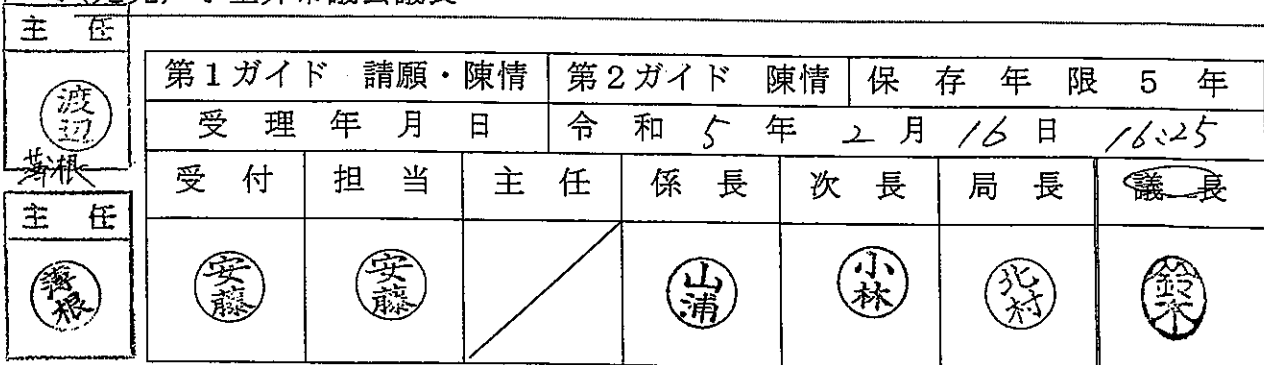 小金井市議会議長
主 任
渡辺
薄根
主 任
薄根
第1ガイド 請願・陳情 第2ガイド 陳情 保 存 年 限 5 年
受 理 年 月 日 令 和 5 年 2 月 16 日 16:25
受 付 担 当 主 任 係 長 次 長 局 長 議 長
安藤 安藤 山浦 小林 北村 鈴木